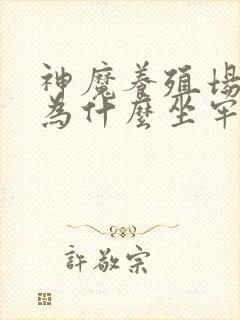 神魔養殖場
為什麼坐牢
許敬宗